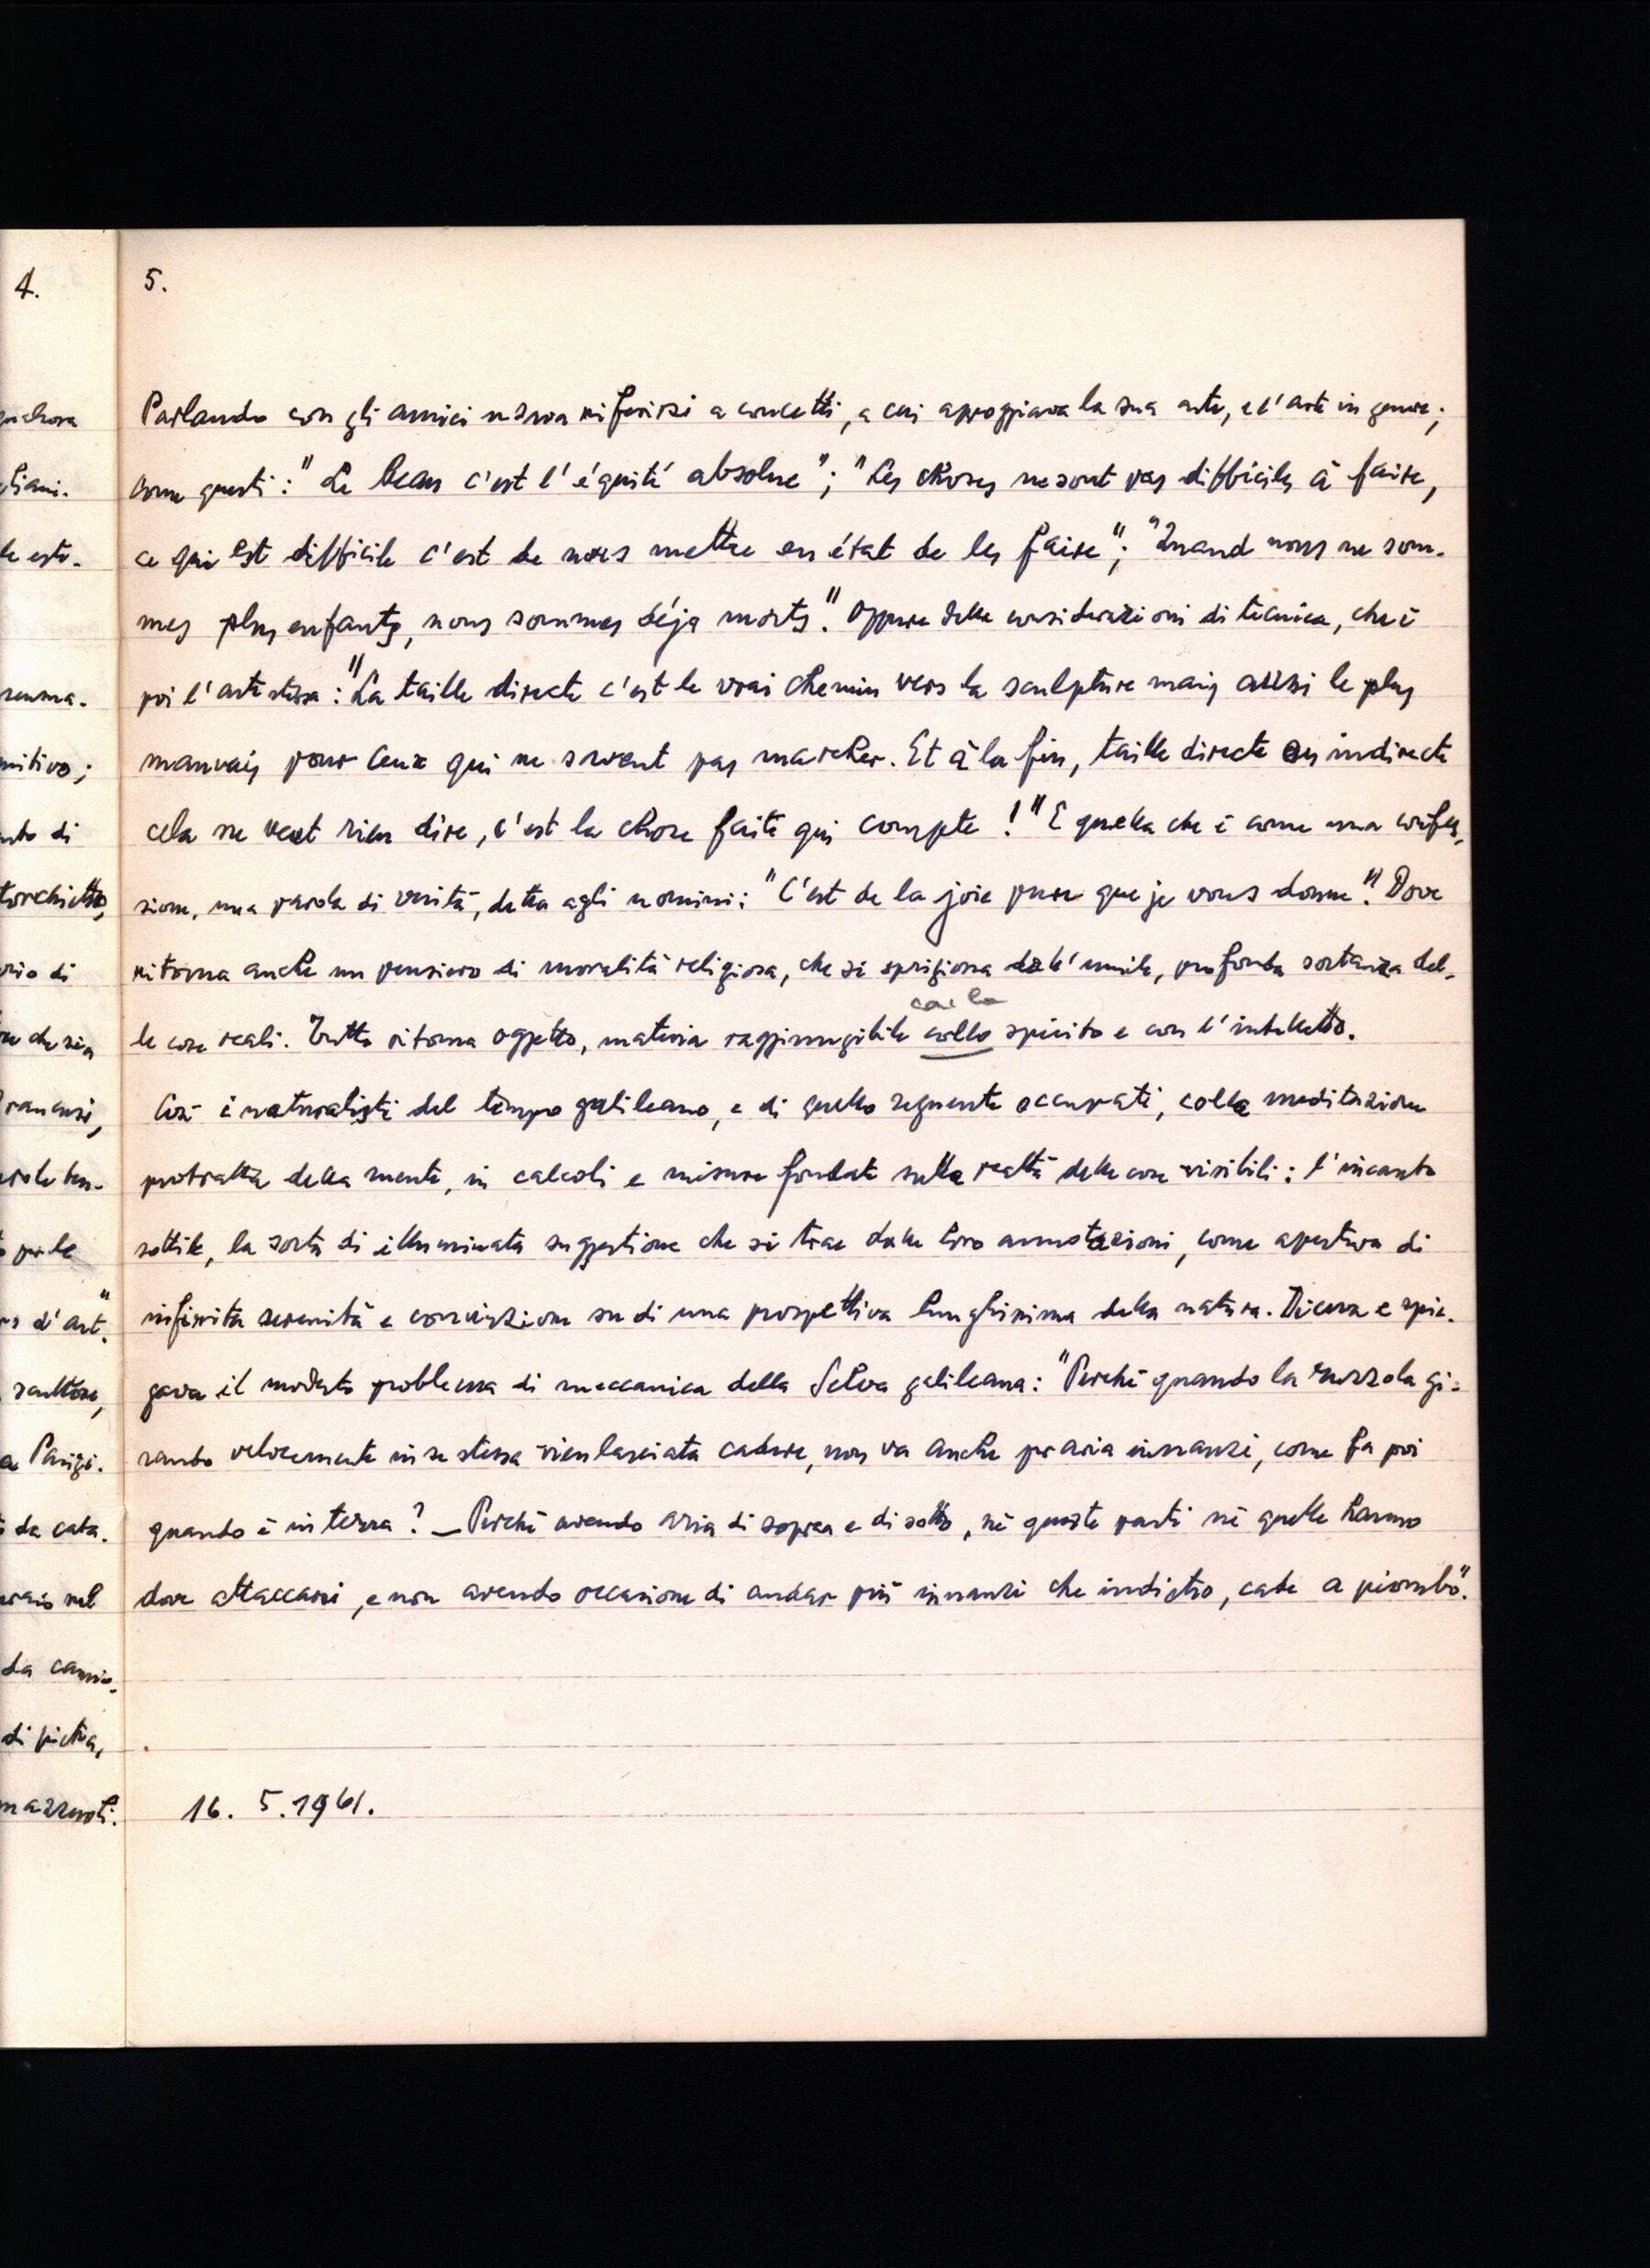 4.
5.
Parlando con gli amici usava riferirsi a concetti, a cui appoggiava la sua arte, e l'arte in genere;
come questi: "Le beau c'est l'équité absolue"; "Les choses ne sont pas difficiles à faire,
ce qui est difficile c'est de nous mettre en état de les faire"; "Quand nous ne som-
mes plus enfants, nous sommes déja morts". Oppure delle considerazioni di tecnica, che è
poi l'arte stessa: "La taille directe c'est le vrai chemin vers la sculpture mais aussi le plus
mauvais pour ceux qui ne savent pas marcher. Et à la fin, taille directe ou indirecte
cela ne veut rien dire, c'est la chose faite qui compte!" E quella che è come una confes-
sione, una parola di verità, detta agli uomini: "C'est de la joie pure que je vous donne". Dove
ritorna anche un pensiero di moralità religiosa, che si sprigiona dall'umile, profonda sostanza del-
le cose reali. Tutto ritorna oggetto, materia raggiungibile collo spirito e con l'intelletto.
Così i naturalisti del tempo galileano, e di quello seguente occupati, colla meditazione
protratta della mente, in calcoli e misure fondate sulla realtà delle cose visibili: l'incanto
sottile, la sorta di illuminata suggestione che si trae dalle loro annotazioni, come apertura di
infinita serenità e convinzione su di una prospettiva lunghissima della natura. Diceva e spie-
gava il modesto problema di meccanica della Selva galileana: "Perchè quando la ruzzola gi-
rando velocemente in se stessa vien lasciata cadere, non va anche per aria innanzi, come fa poi
quando è in terra? – Perchè avendo aria di sopra e di sotto, nè queste parti nè quelle hanno
dove attaccarsi, e non avendo occasione di andar più innanzi che indietro, cade a piombo".
16. 5. 1961.